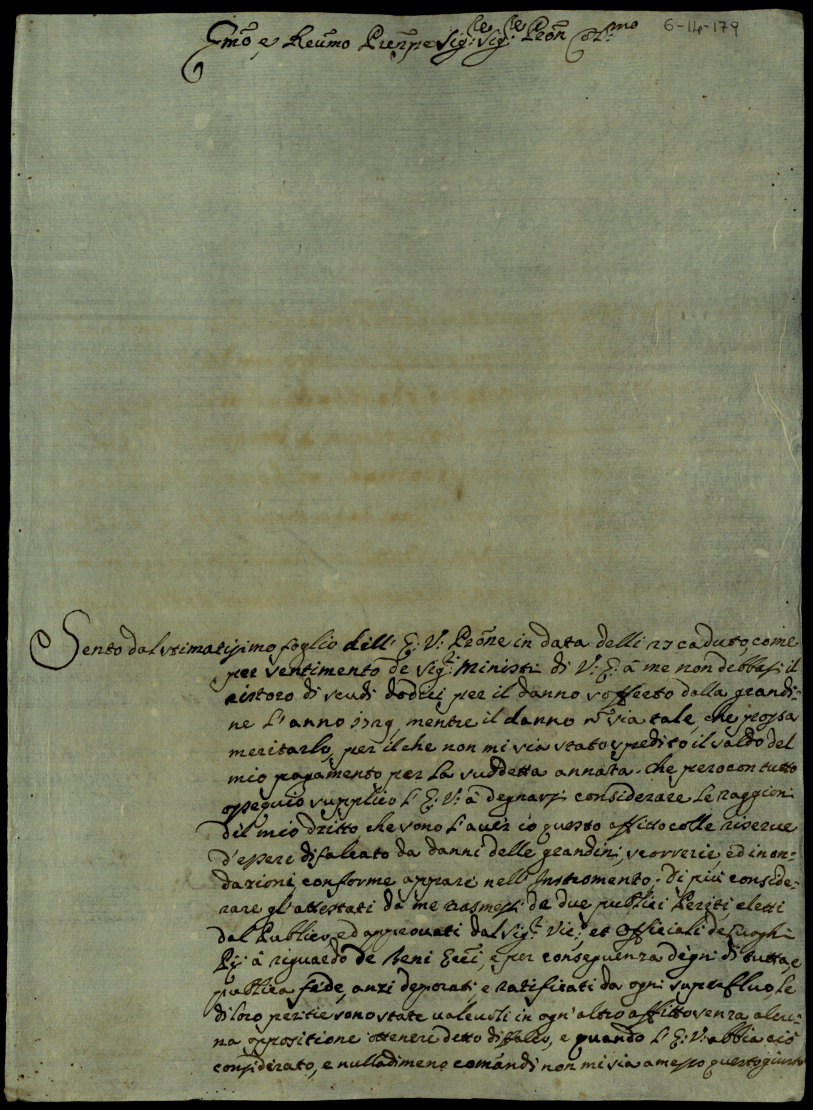 6-14-179
Em̃o e Reu͂mo Pren͂pe Sig:re Sig:re Pro͂n Col:mo
Sento dal stimatissimo foglio dell' E: V: Pro͂ne in data delli 23 caduto, come
per sentimento de Sig:ri Ministri di V: E: à me non debbasi il
ristoro di scudi dodici per il danno sofferto dalla grandi-
ne l'anno 1729, mentre il danno n͂ sia tale, che possa
meritarlo, per il che non mi sia stato spedito il saldo del
mio pagamento per la suddetta annata. Che però con tutto
ossequio supplico l' E: V: à degnarsi considerare le raggioni
del mio dritto, che sono l'aver io questo affitto colle riserve
d'essere difalcato da danni delle grandini, scorrerie, ed inon-
dazioni, conforme appare nell' Instromento. Di più conside-
rare gl'attestati da me trasmessi de due publici Periti, eletti
dal Publico, ed approvati dal Sig:r Vic:o, et Officiali de Luoghi
Pij à riguardo de Beni Ecc:ci, e per conseguenza degni di tutta, e
publica fede, anzi deporati e ratificati da ogni superfluo, le
di loro peritie sono state valevoli in ogn' altro affitto senza alcu-
na oppositione ottenere detto difalco, e quando l' E: V: abbia ciò
considerato, e nulladimeno comandi non mi sia amesso questo giusto